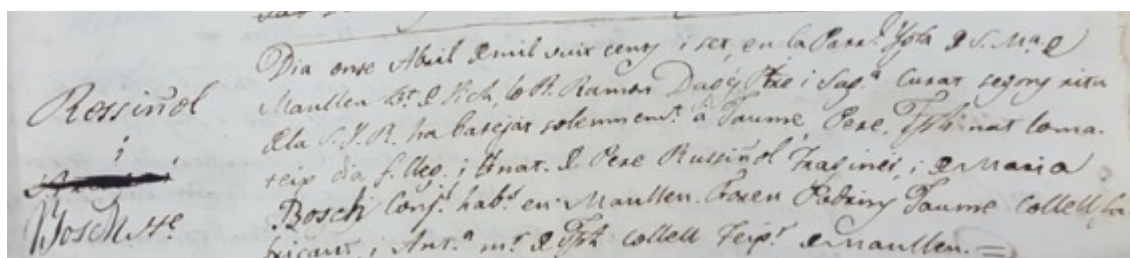 Rossiñol
i
Bosch He.
Dia onse Abril de mil vuit cents i set, en la Parrl. Ygla. de S. Ma. de
Manlleu Bt. de Vich, lo Rt. Ramon Pbre i Sagrt. Curat segons ritu
de la S. I. R. ha batejat solemnemt. à Jaume, Pere, Jph nat lo ma-
teix dia f. lleg. i nat. de Pere Russiñol Traginer, i de Maria
Bosch Conjts. habts. en Manlleu. Foren Padrins Jaume Collell fa
bricant, i Anta. mr. de Jph Collell Teixr. de Manlleu.=